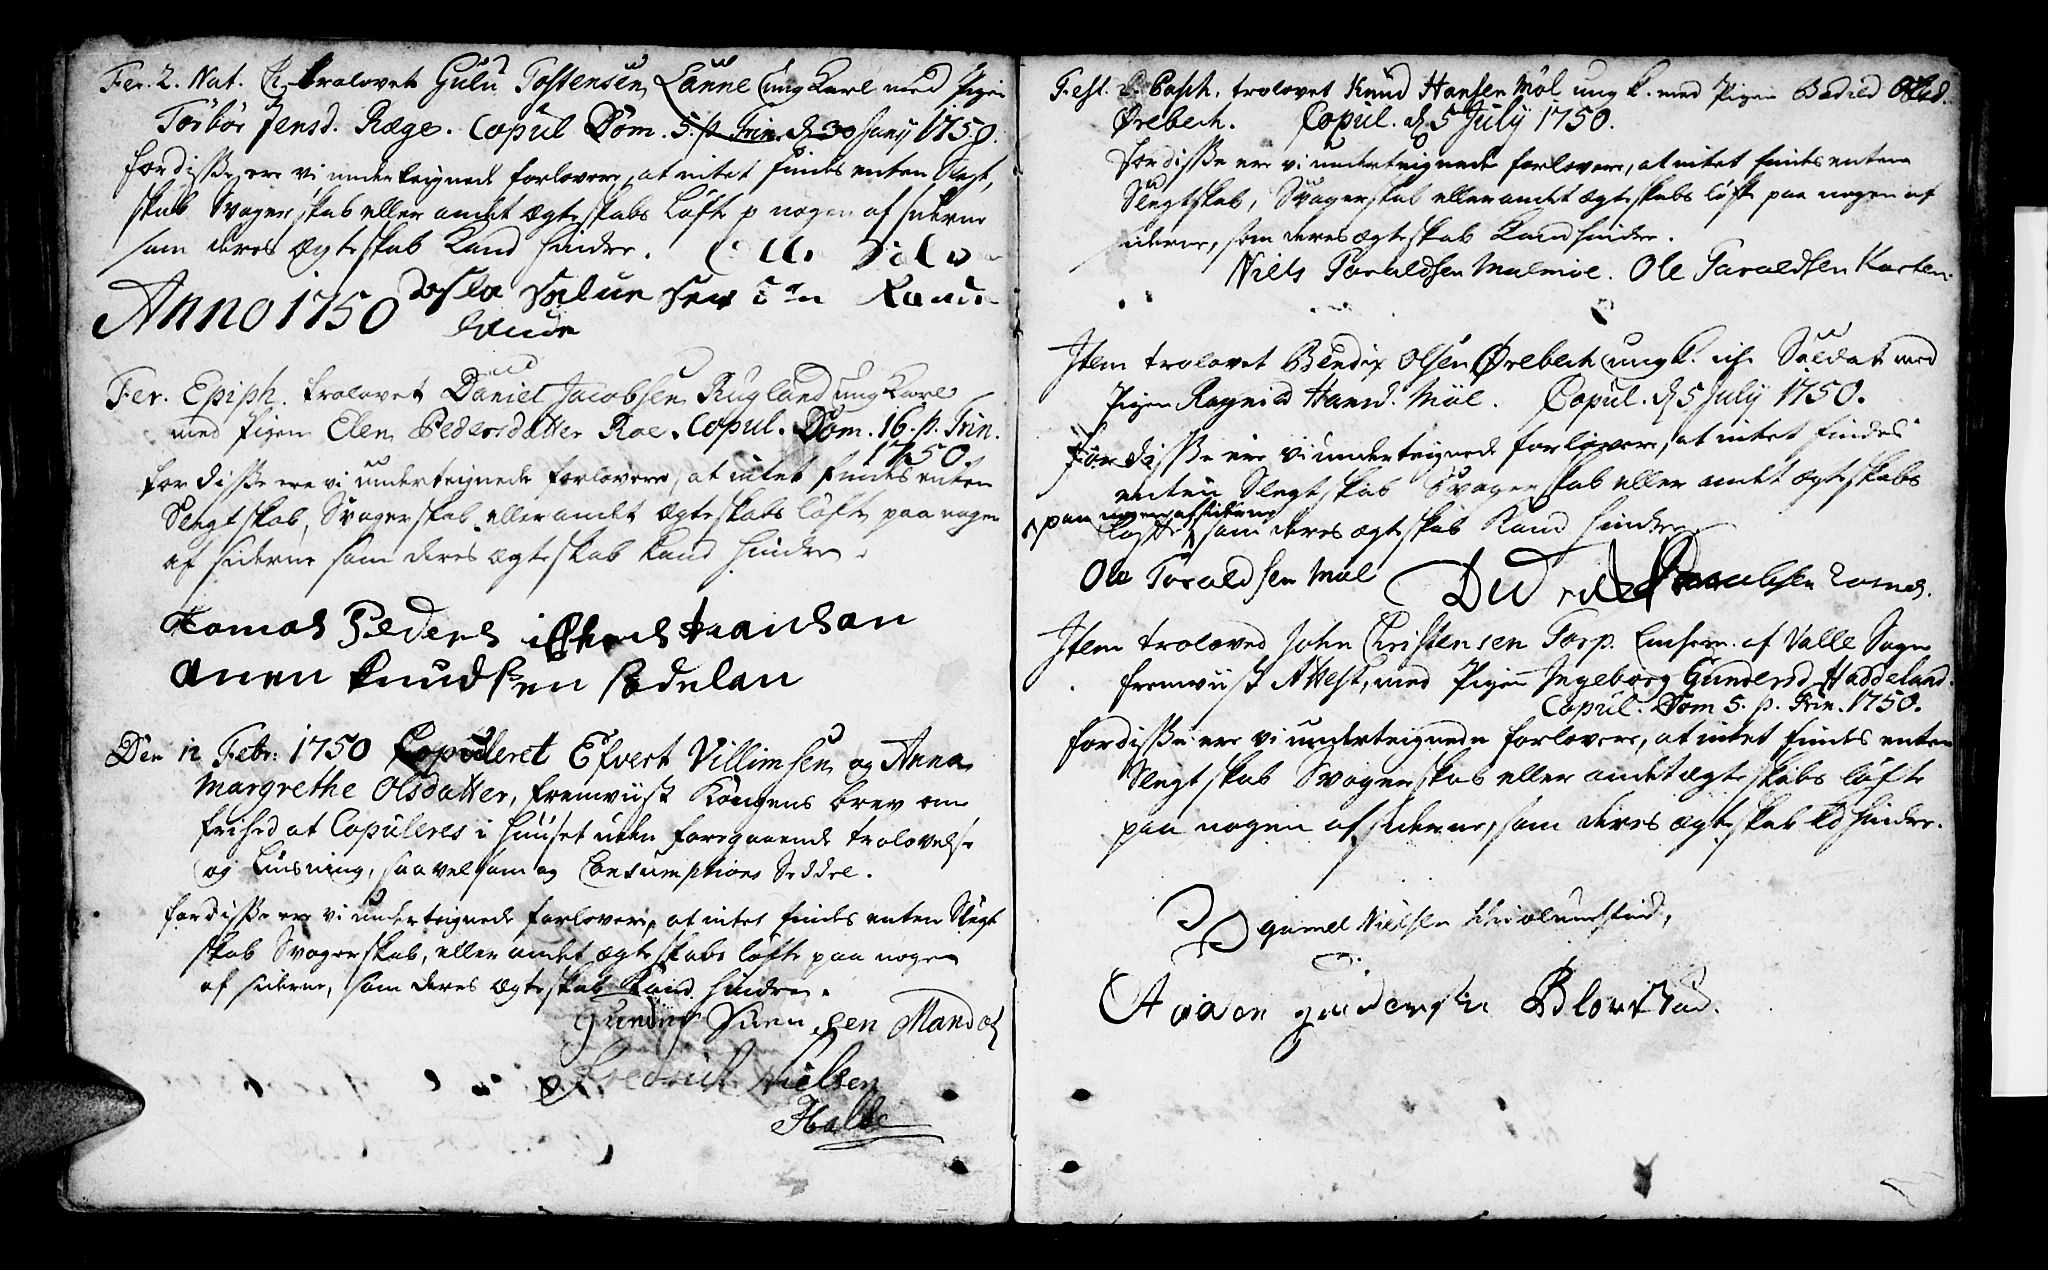 Fer. 2. Nat. Ch. trolovet Gulu Tostensen Lanne ung Karl med Pigen
Torbor Jensd. Røge. Copul Dom. 5. p. Trin. d 30 Junij 1750.
for disse ere vi underteignede forlovere, at intet findes enten Slegt,
skab Svogerskab eller andet Ægteskabs Løfte p nogen af siderne
som deres Ægteskab Kand hindre.
Anno 1750
Fer. Epiph. trolovet Daniel Jacobsen Rugland ung Karl
med Pigen Elen Pedersdatter Roe. Copul. Dom. 16. p. Trin.
1750.
for disse ere vi underteignede forlovere, at intet findes enten
Slegtskab, Svogerskab eller andet Ægteskabs løfte paa nogen
af siderne som deres ægteskab kand hindre.
Tomas Peders
Anen Knudsen
Den 12 Febr. 1750 Copuleret Efvert Villimsen og Anna
Margrethe Olsdatter, fremviist Kongens brev om
frihed at Copuleres i Huuset uden foregaaende trolovelse
og Liusning, saavelsom og Consumptions Seddel.
for disse ere vi underteignede forlovere, at intet findes enten Slegt
skab Svogerskab, eller andet ægteskabs løfte paa nogen
af siderne, som deres Ægteskab Kand hindre.
Suen sen Mandal
Fredrick Nielsen
Halle
Fest. 2. Pasch. trolovet Knud Hansen Møl ung k. med Pigen Bodild Olsd.
Ørebech. Copul. d 5 July 1750.
for disse ere vi underteignede forlovere, at intet findes enten
Slegtskab, Svogerskab eller andet ægteskabs løfte paa nogen af
siderne, som deres ægteskab kand hindre.
Niels Taraldsen Malmøe. Ole Taraldsen
Item trolovet Bendix Olsen Ørebech ung k. Soldat med
Pigen Ragnild Hansd. Møl. Copul. d 5 July 1750.
for disse ere vi underteignede forlovere, at intet findes
enten Slegtskab Svogerskab eller andet ægteskabs
paa nogen af siderne
løfte som deres ægteskab kand hindre
Ole Taraldsen Møl
Item troloved John Christensen Torp af Valle Sogn
fremviist Attest, med Pigen Ingeborg Gundersd. Haddeland.
Copul. Dom 5. p. Trin. 1750.
for disse ere vi underteignede forlovere, at intet findes enten
Slegtskab Svogerskab eller andet ægteskabs løfte
paa nogen af siderne, som deres ægteskab kd hindre.
Nielsen